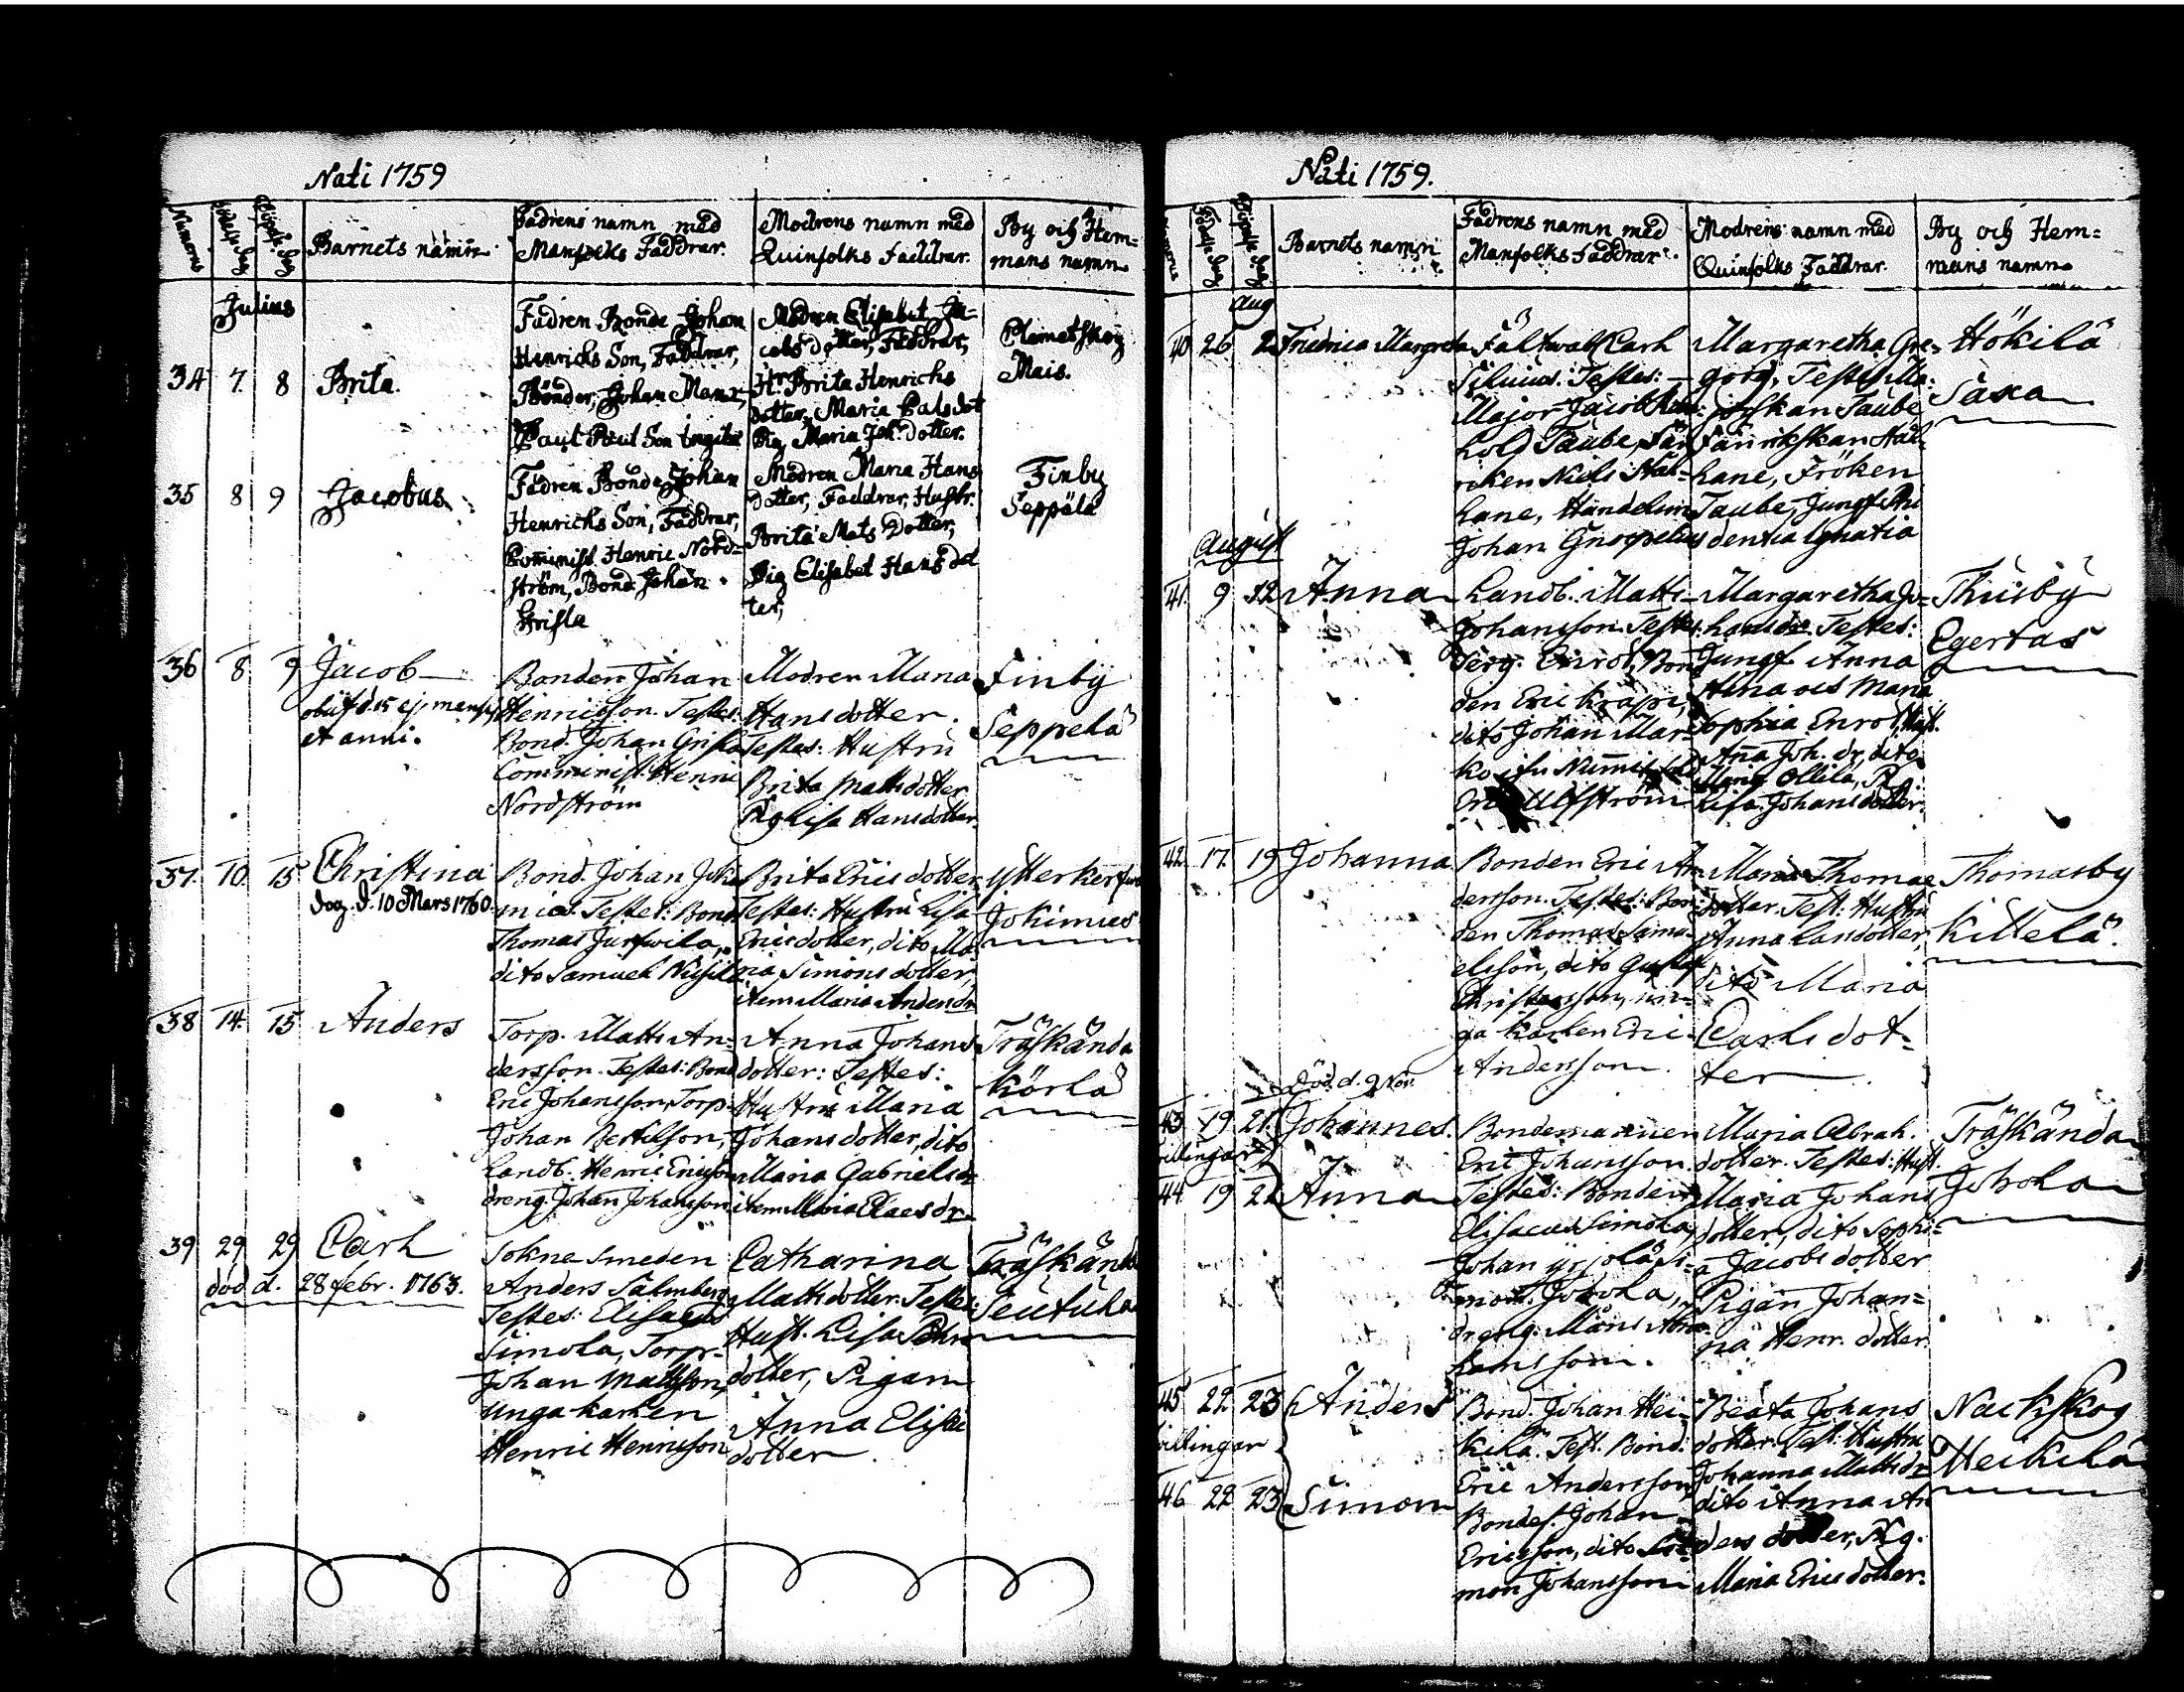 Nati 1759
Numerus
Födelse dag
Döpelse dag
Barnets namn
Fadrens namn med
Manfolks Faddrar.
Modrens namn med
Quinfolks Faddrar.
By och Hem=
mans namn
Julius
34 7. 8 Brita.
Fadren Bonde Johan
Henrichs Son, Faddrar,
Bönder, Johan
Paul Paul Son
Modren Elisabet Ja-
cobs dotter, Faddrar,
Hr. Brita Henrichs
dotter, Maria
Pig Maria Joh. dotter.
Clametskog
Mais.
35 8 9 Jacobus
Fadren Bonde Johan
Henrichs Son, Faddrar,
Comminist. Henric Nord=
ström, Bond. Johan
Grisla
Modren Maria Hans
dotter, Faddrar, Hustr.
Brita Mats Dotter,
Pig Elisabet Hans dot
ter,
Finby
Seppälä
36 8 9 Jacob
obiit d 15 ej. mensis
et anni.
Bonden Johan
Henricsson. Testes:
Bond. Johan Grisla
Comminist. Henric
Nordström
Modren Maria
Hansdotter.
Testes: Hustru
Brita Mattsdotter
Pig Lisa Hansdotter.
Finby
Seppelä
37. 10. 15 Christina
dog. d. 10 Mars 1760.
Bond. Johan Joki
mies. Testes: Bond
Thomas
dito Samuel
Brita Ericsdotter
Testes: Hustru Lisa
Ericsdotter, dito Ma
ria Simonsdotter,
item Maria Andersdr
Jokimies
38 14. 15 Anders
Torp. Matts An=
dersson. Testes: Bond
Eric Johansson, Torp.
Johan Bertilson,
Landb. Henric Ericsson
dreng. Johan Johansson
Anna Johans
dotter: Testes:
Hustru Maria
Johansdotter, dito
Maria Gabrielsdr
item Maria Claesdr
Träskända
Körlä
39 29 29 Carl
död d. 28 febr. 1763.
Sokne Smeden
Anders Salmberg
Testes: Elisaeus
Simola, Torpr.
Johan Mattsson,
unga karlen
Henric Henricsson
Catharina
Mattsdotter. Testes:
Hust. Lisa
dotter, Pigan
Anna
dotter.
Träskända
Seutula
Nati 1759.
Födelse dag
Döpelse dag
Barnets namn
Fadrens namn med
Manfolks Faddrar.
Modrens namn med
Quinfolks Faddrar.
By och Hem=
mans namn
Aug
40 26 2 Friedrica Margreta
Fältwäb. Carl
Silvius. Testes:
Major Jacob
hold Taube, Fän
riken Niels
Johan
Margaretha Gre=
Testes: Ma=
jorskan Taube
Fänrikskan
Fröken
Taube, Jungf.
dentia Ignatia
Hökilä
Saxa
August
41. 9 12 Anna
Landb. Matts
Johansson. Testes:
den Eric Krapi,
dito Johan Mar=
Ulfström
Margaretha Jo=
hansdr. Testes:
Jungf. Anna
Stina och Maria
Sophia Enrot, Hust.
Anna Joh. dr, dito
Maria Ollila,
Lisa Johansdotter.
Thusby
Egertas
42. 17. 19 Johanna
Bonden Eric An
dersson. Testes: Bon=
den Thomas Samu=
elsson, dito Gustaf
Christersson, un=
ga karlen Eric
Andersson.
Maria Thomae
dotter. Test: Hustru
Anna Larsdotter
dito Maria
Carlsdot=
ter
Thomasby
Kittelä.
död. d. 9 Nov.
43 19 21. Johannes.
44. 19 21 Anna
Bondemannen
Eric Johansson.
Testes: Bonden
Elisaeus Simola,
Johan
mon. Johola,
dreng. Måns Abra
hamsson.
Maria Abrah.
dotter. Testes: Hust.
Maria Johans
dotter, dito Sophi=
a Jacobsdotter
Pigan Johan=
na Henr. dotter.
Träskända
Johola
45 22. 23 Anders
46. 22 23 Simon
Bond. Johan Hei=
kilä. Test. Bond.
Eric Andersson,
Bondes. Johan
Ericsson, dito Si=
mon Johansson
Beata Johans
dotter. Test: Hustru
Johanna Mattsdr
dito Anna An
dersdotter, Pig.
Maria Ericsdotter.
Nackskog
Heikilä